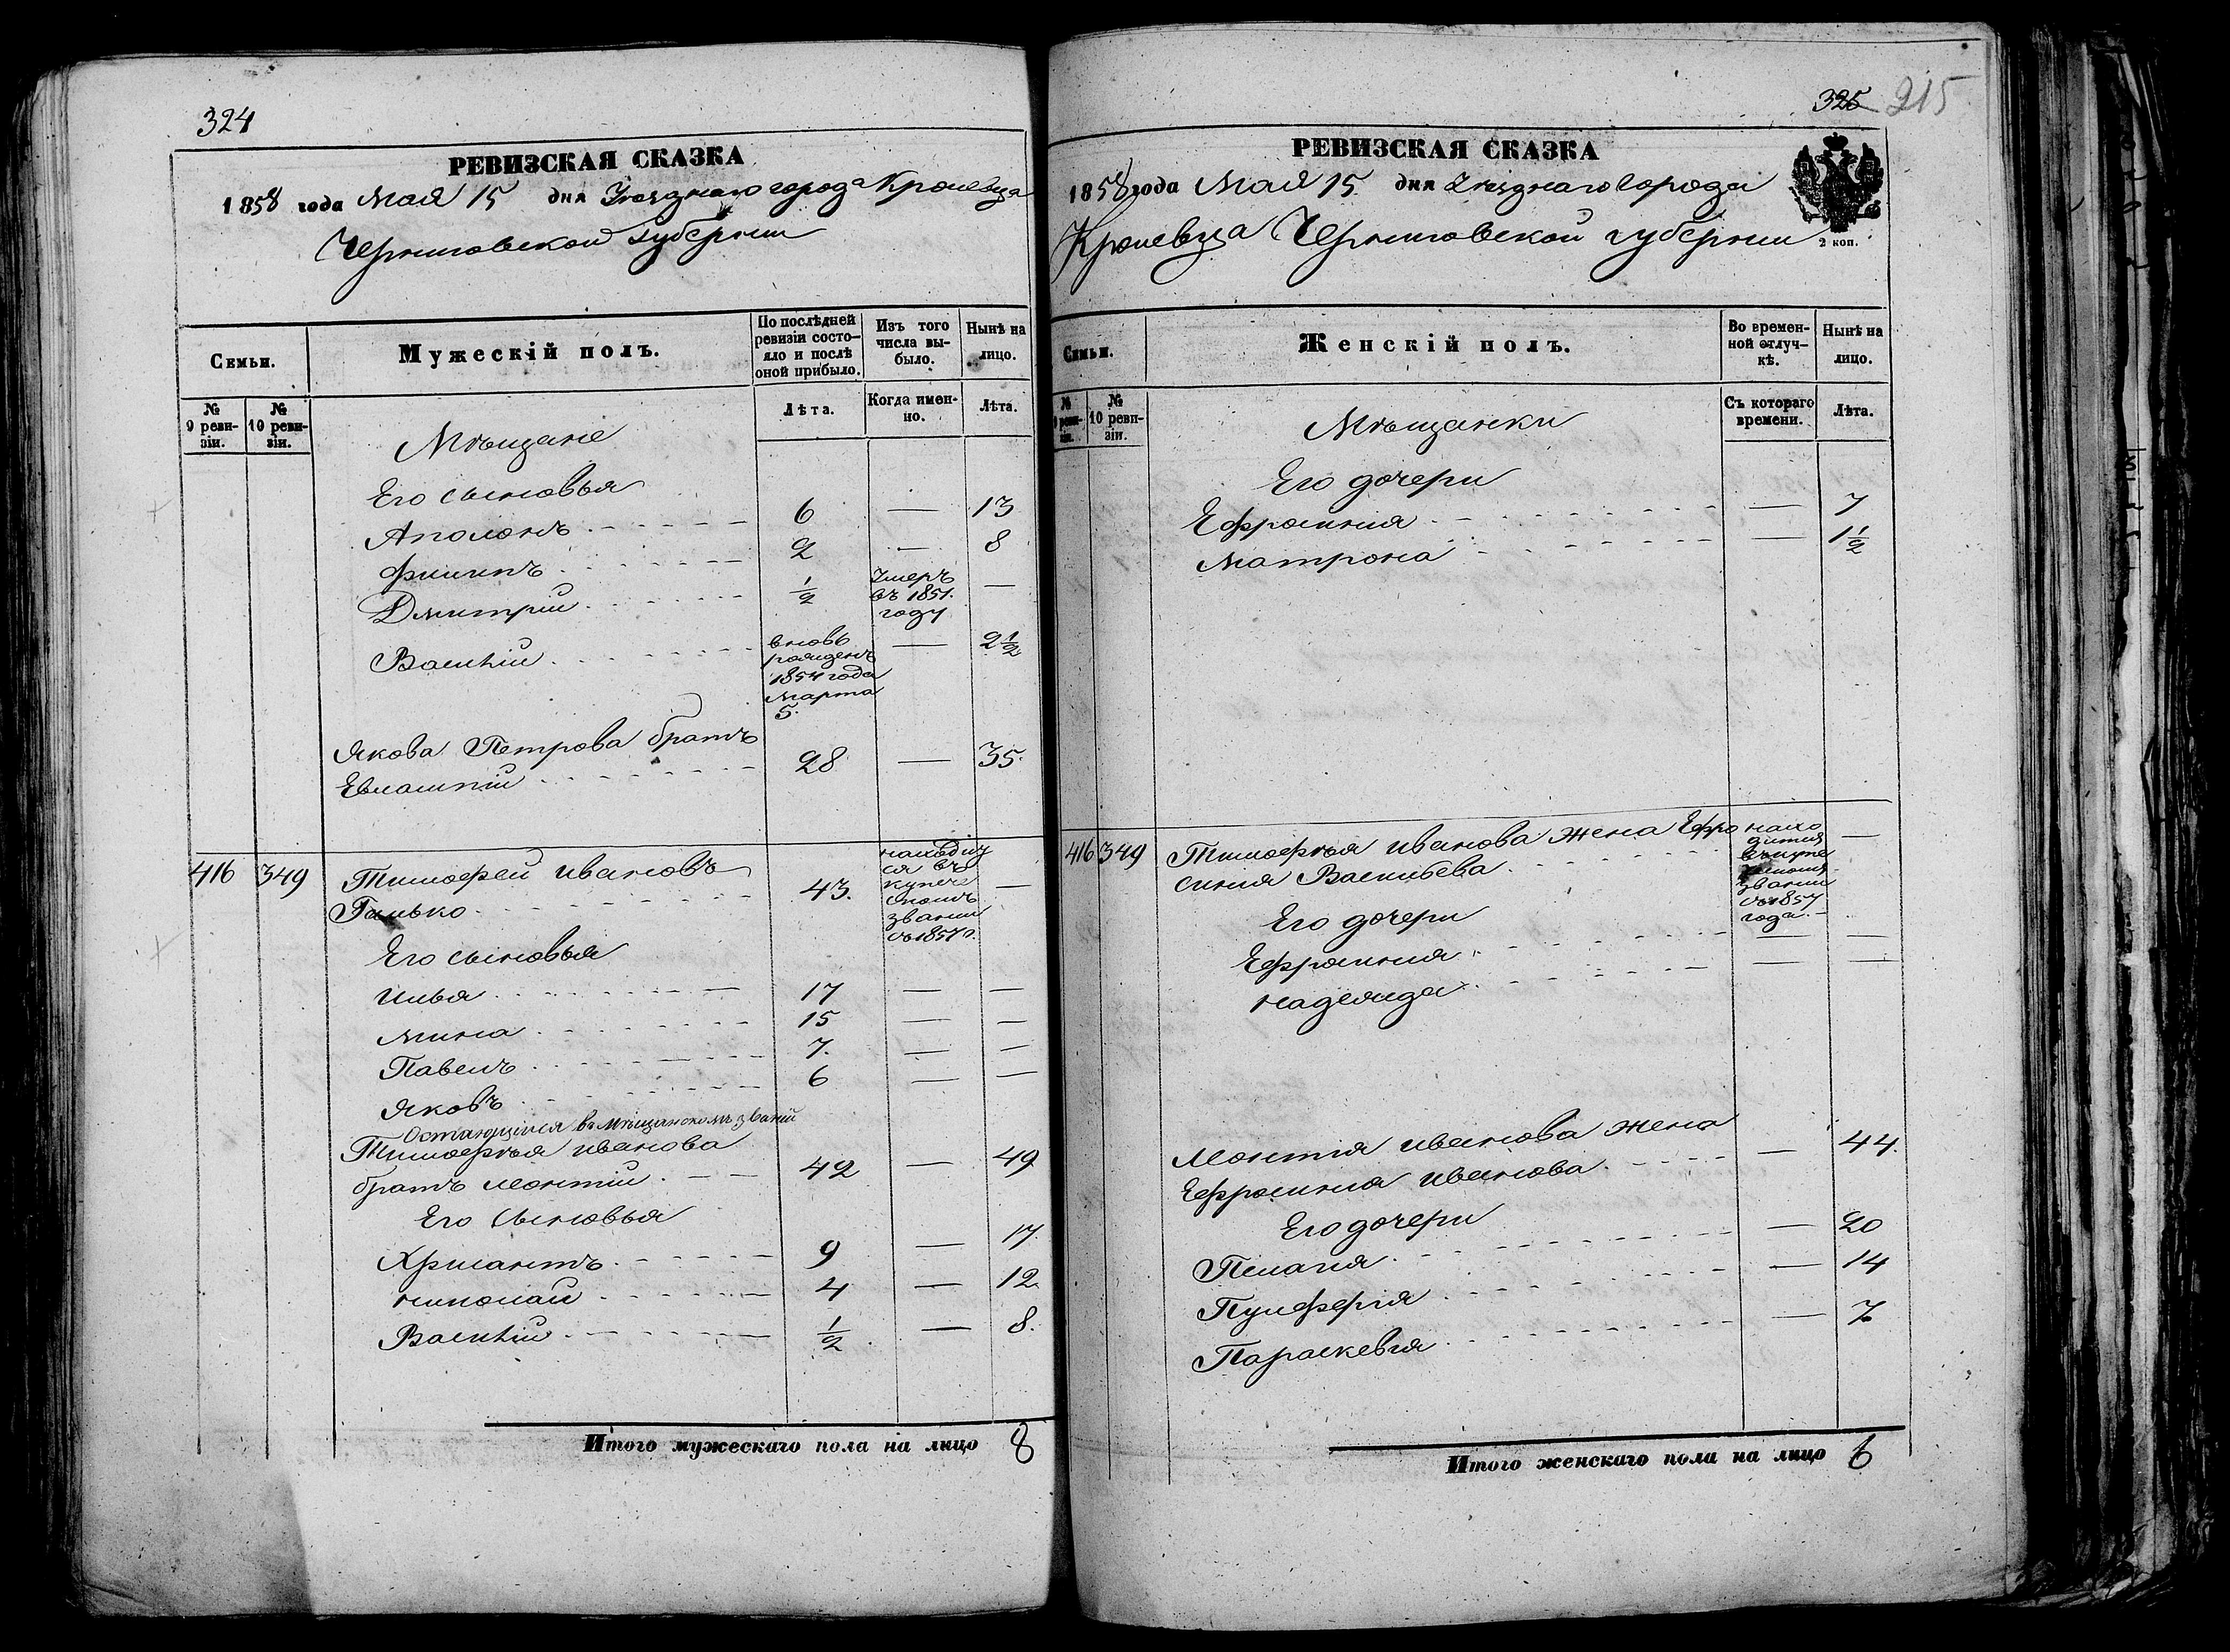 324
РЕВИЗСКАЯ СКАЗКА
1858 года Мая 15 дня Уѣзднаго города Кролевца
Черниговской губерніи
Семьи.
Мужескій полъ.
По послѣдней ревизіи состо-
яло и послѣ
оной прибыло.
Изъ того
числа вы-
было.
Нынѣ на
лицо.
№
9 реви-
зіи.
№
10 реви-
зіи.
Лѣта.
Когда имен-
но.
Лѣта.
Мѣщане
Его сыновья
Аполонъ 6 — 13
Филипъ 2 — 8
Дмитрій 1/2 Умеръ въ 1851. году —
Василій вновь рожденъ 1854 года Марта 5. — 2 1/2
Якова Петрова братъ
Евлампій 28 — 35.
416 349 Тимофей Ивановъ
Гилько 43. находит ся въ купече скомъ званіи съ 1857 г. —
Его сыновья
Илья 17 — —
Мина 15 — —
Павелъ 7. — —
Яковъ 6 — —
Остающіися въ мѣщанскомъ званіи
Тимофѣя Иванова
братъ Леонтій 42 — 49
Его сыновья
Хрисантъ 9 — 17.
Николай 4 — 12.
Василій 1/2 — 8.
Итого мужескаго пола на лицо 8
325 215
РЕВИЗСКАЯ СКАЗКА
1858 года Мая 15 дня Уѣзднаго города
Кролевца Черниговской губерніи
2 коп.
Семьи.
Женскій полъ.
Во времен-
ной отлуч-
кѣ.
Нынѣ на
лицо.
№
9 реви-
зіи.
№
10 реви-
зіи.
Съ котораго
времени.
Лѣта.
Мѣщанки
Его дочери
Ефросинія — 7
Матрона — 1 1/2
416 349 Тимофѣя Иванова жена Ефро
синія Васильева нахо дится въ купе званіи съ 1857 года. —
Его дочери
Ефросинія — —
Надежда — —
Леонтія Иванова жена
Ефросинія Иванова — 44.
Его дочери
Пелагія — 20
Пульферія — 14
Параскевія — 7
Итого женскаго пола на лицо 6